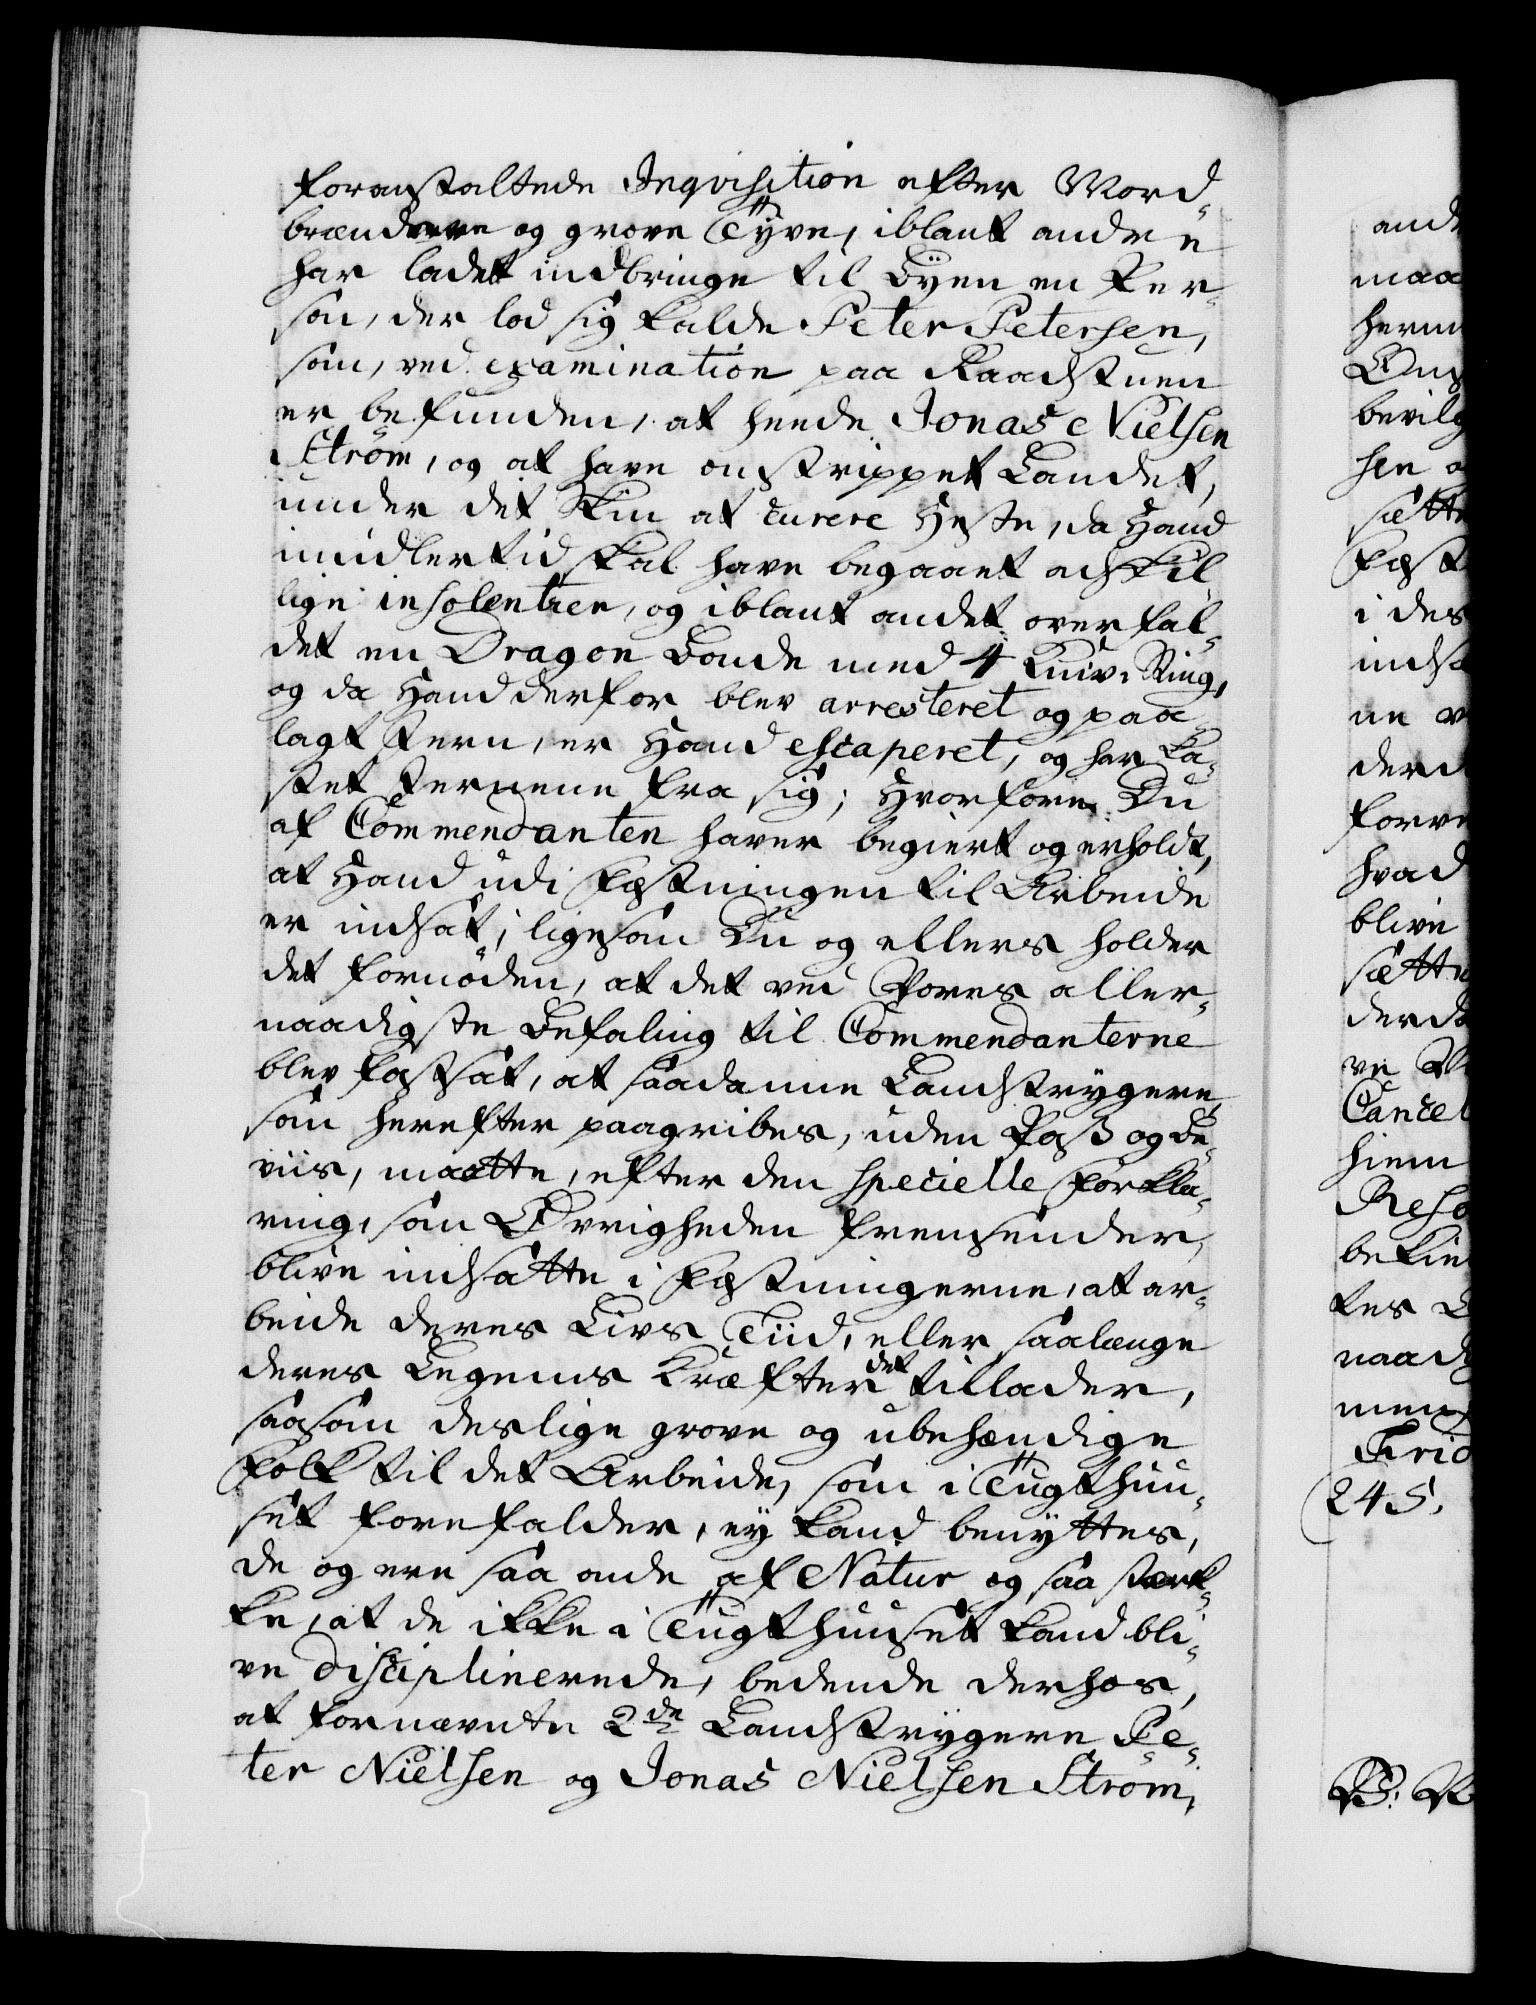 foranstaltede Inqvisition efter Mord-
brændere og grove Tyve, iblant andre
har ladet indbringe til Byen en Per-
son, der lod sig kalde Peter Petersen,
som, ved examination paa Raadstuen
er befunden, at heede Jonas Nielsen
Strøm, og at have omstrippet Landet,
under det Skin at curere Heste, da Hand
imidlertid skal have begaaet adskil-
lige insolentier, og iblant andet overfal-
det en Dragon Bonde med 4 Knivs Sting,
og da Hand derfor blev arresteret og paa-
lagt Jern, er Hand eschaperet, og har ka-
stet Jernene fra sig; Hvorfore Du
af Commendanten haver begiert og erholdt,
at Hand udi Fæstningen til Arbeide
er indsat; ligesom Du og ellers holder
det fornöden, at det ved Vores aller-
naadigste Befaling til Commendanterne
blev fastsat, at saadanne Landstrygere,
som herefter paagribes, uden Pass og Be-
viis, maatte, efter den specielle Forkla-
ring, som Øvrigheden fremsender,
blive indsatte i Fæstningerne, at ar-
beide deres Livs Tiid, eller saalænge
deres Legems Kræfter det tillader,
saasom deslige grove og ubehændige
Folk til det Arbeide, som i Tugthuu-
set forefalder, ey kand benyttes,
de og ere saa onde af Natur og saa stær-
ke, at de ikke i Tugthuuset kand bli-
ve disciplinerede, bedende derhos,
at fornævnte 2de Landstrygere Pe-
ter Nielsen og Jonas Nielsen Strøm,
maa
bevilg
sætte
i des
forre
hvad
blive
sætte
Cancel
hiem
Reso
naad
Frid
245.